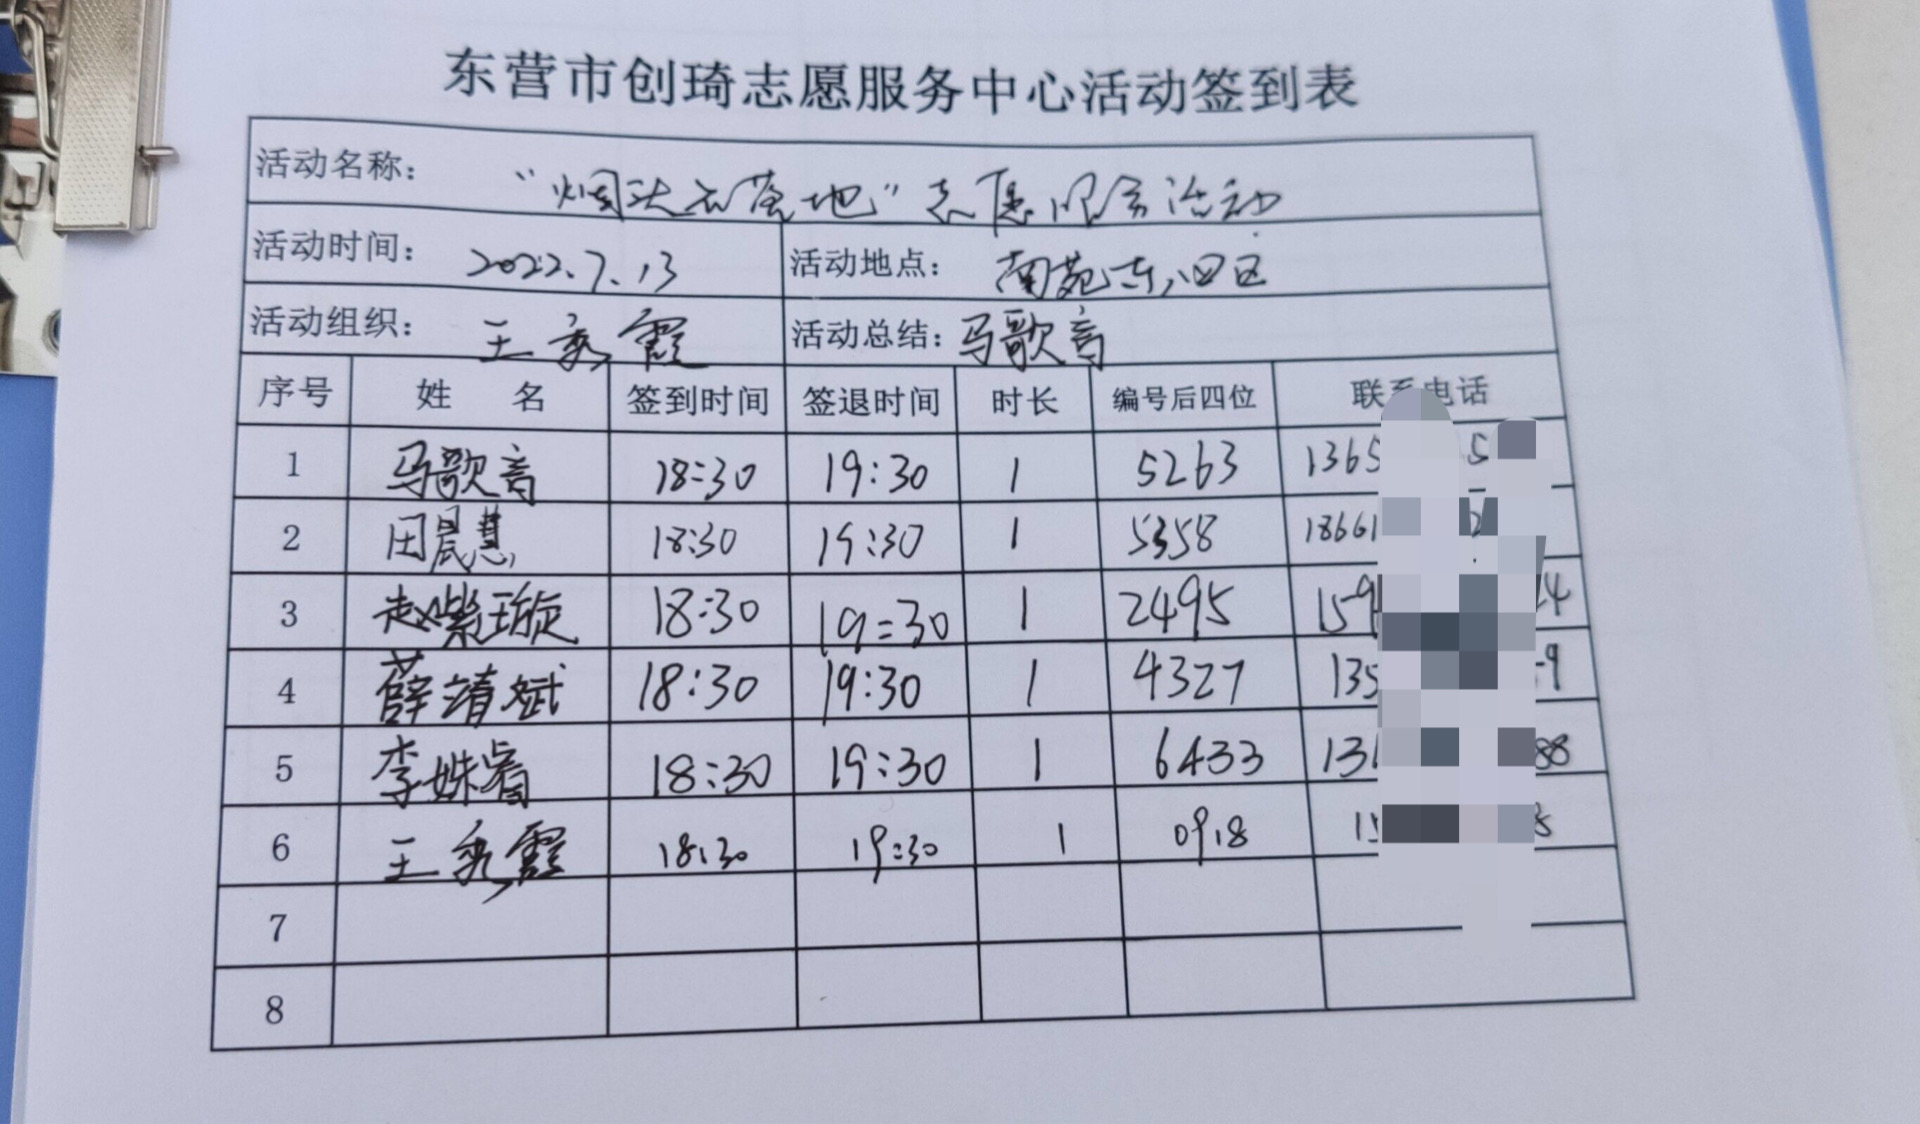 东营市创琦志愿服务中心活动签到表
活动名称： “烟头不落地”志愿服务活动
活动时间： 2022.7.13 活动地点： 南苑东八四区
活动组织： 王秀霞 活动总结：马歌音
序号 姓 名 签到时间 签退时间 时长 编号后四位 联系电话
1 马歌音 18:30 19:30 1 5263 1365
2 田晨慧 18:30 19:30 1 5358 18661
3 赵紫璇 18:30 19:30 1 2495
4 薛靖斌 18:30 19:30 1 4327 135
5 李姝睿 18:30 19:30 1 6433 88
6 王秀霞 18:30 19:30 1 0918
7
8